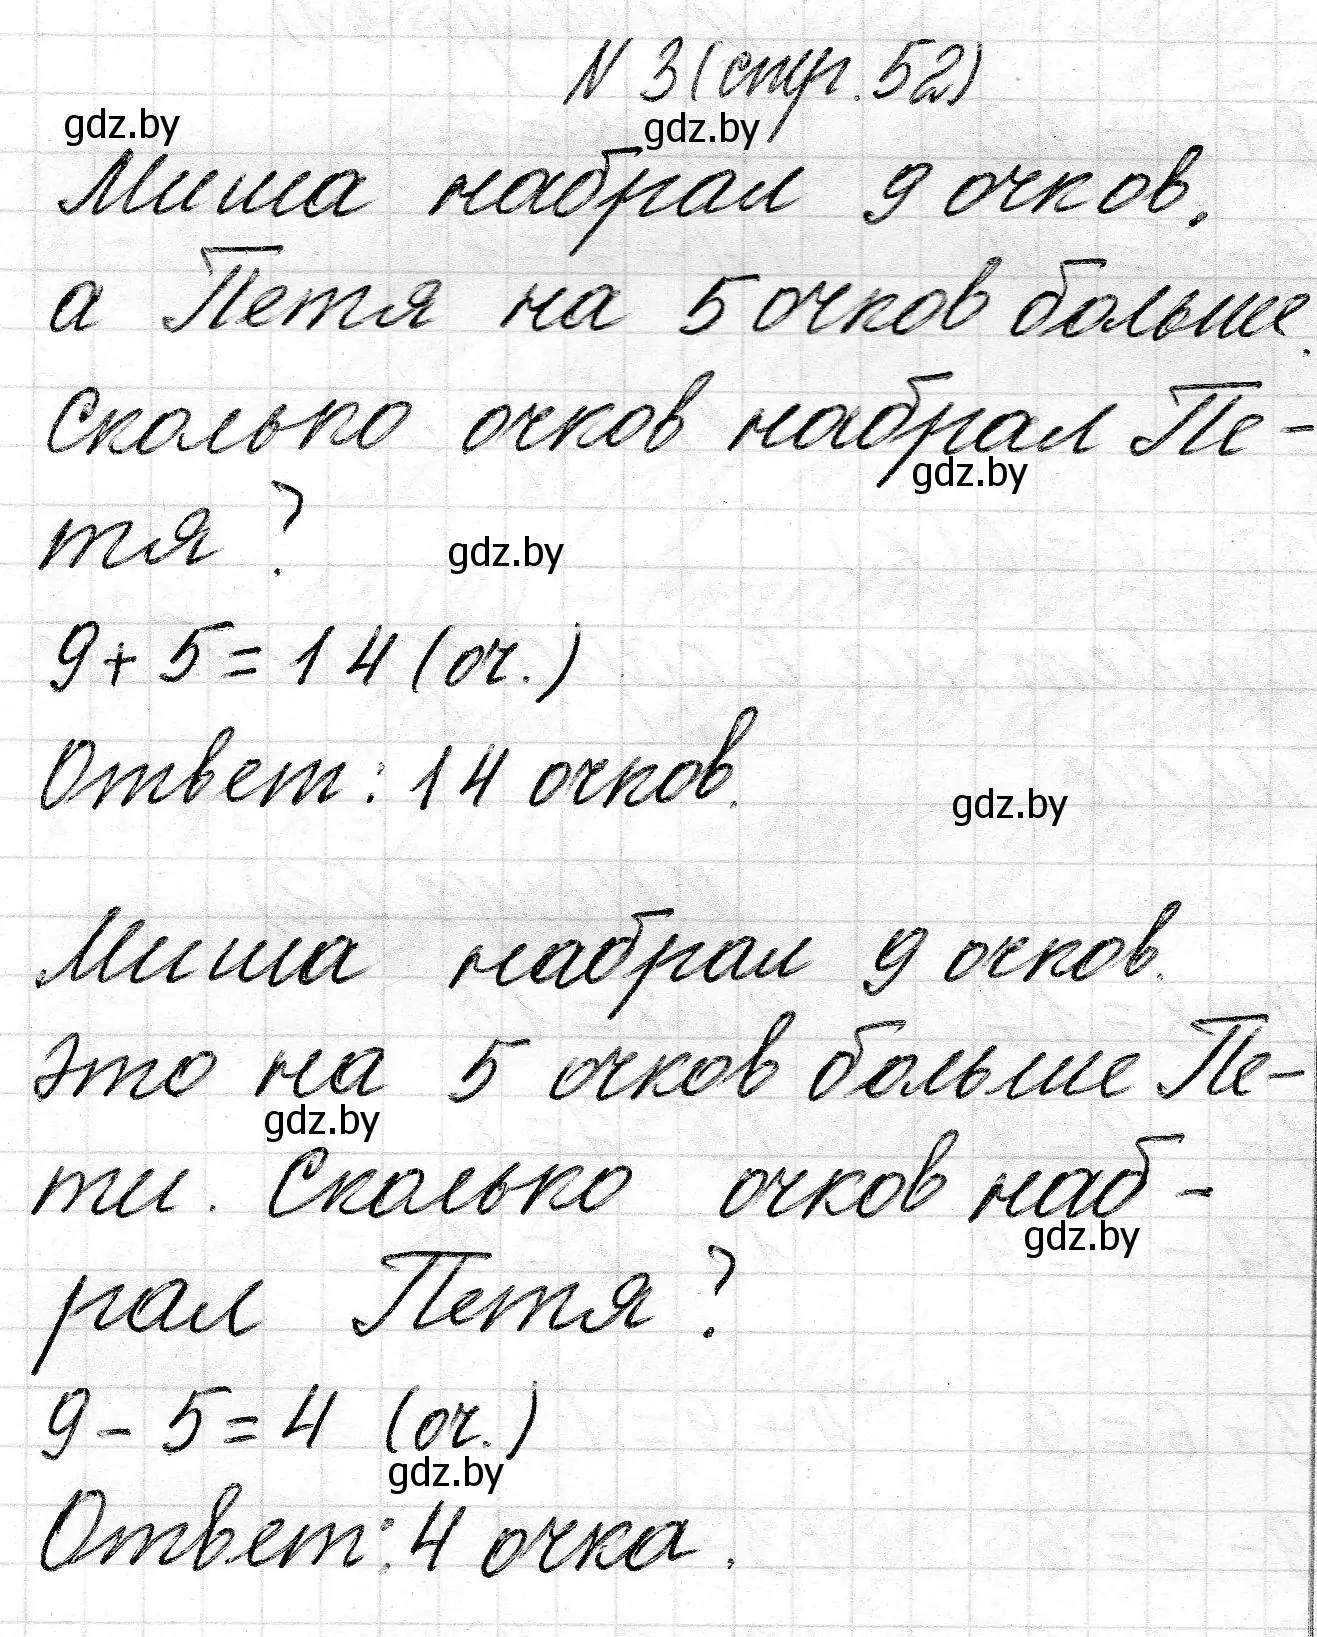 N 3 (стр. 52)
gdz.by
gdz.by
Миша набрал 9 очков,
а Петя на 5 очков больше.
Сколько очков набрал Пе-
gdz.by
тя ?
gdz.by
9 + 5 = 14 (оч.)
Ответ: 14 очков.
gdz.by
Миша набрал 9 очков.
Это на 5 очков больше Пе-
gdz.by
ти. Сколько очков наб-
gdz.by
рал Петя ?
9 - 5 = 4 (оч.)
gdz.by
Ответ: 4 очка.